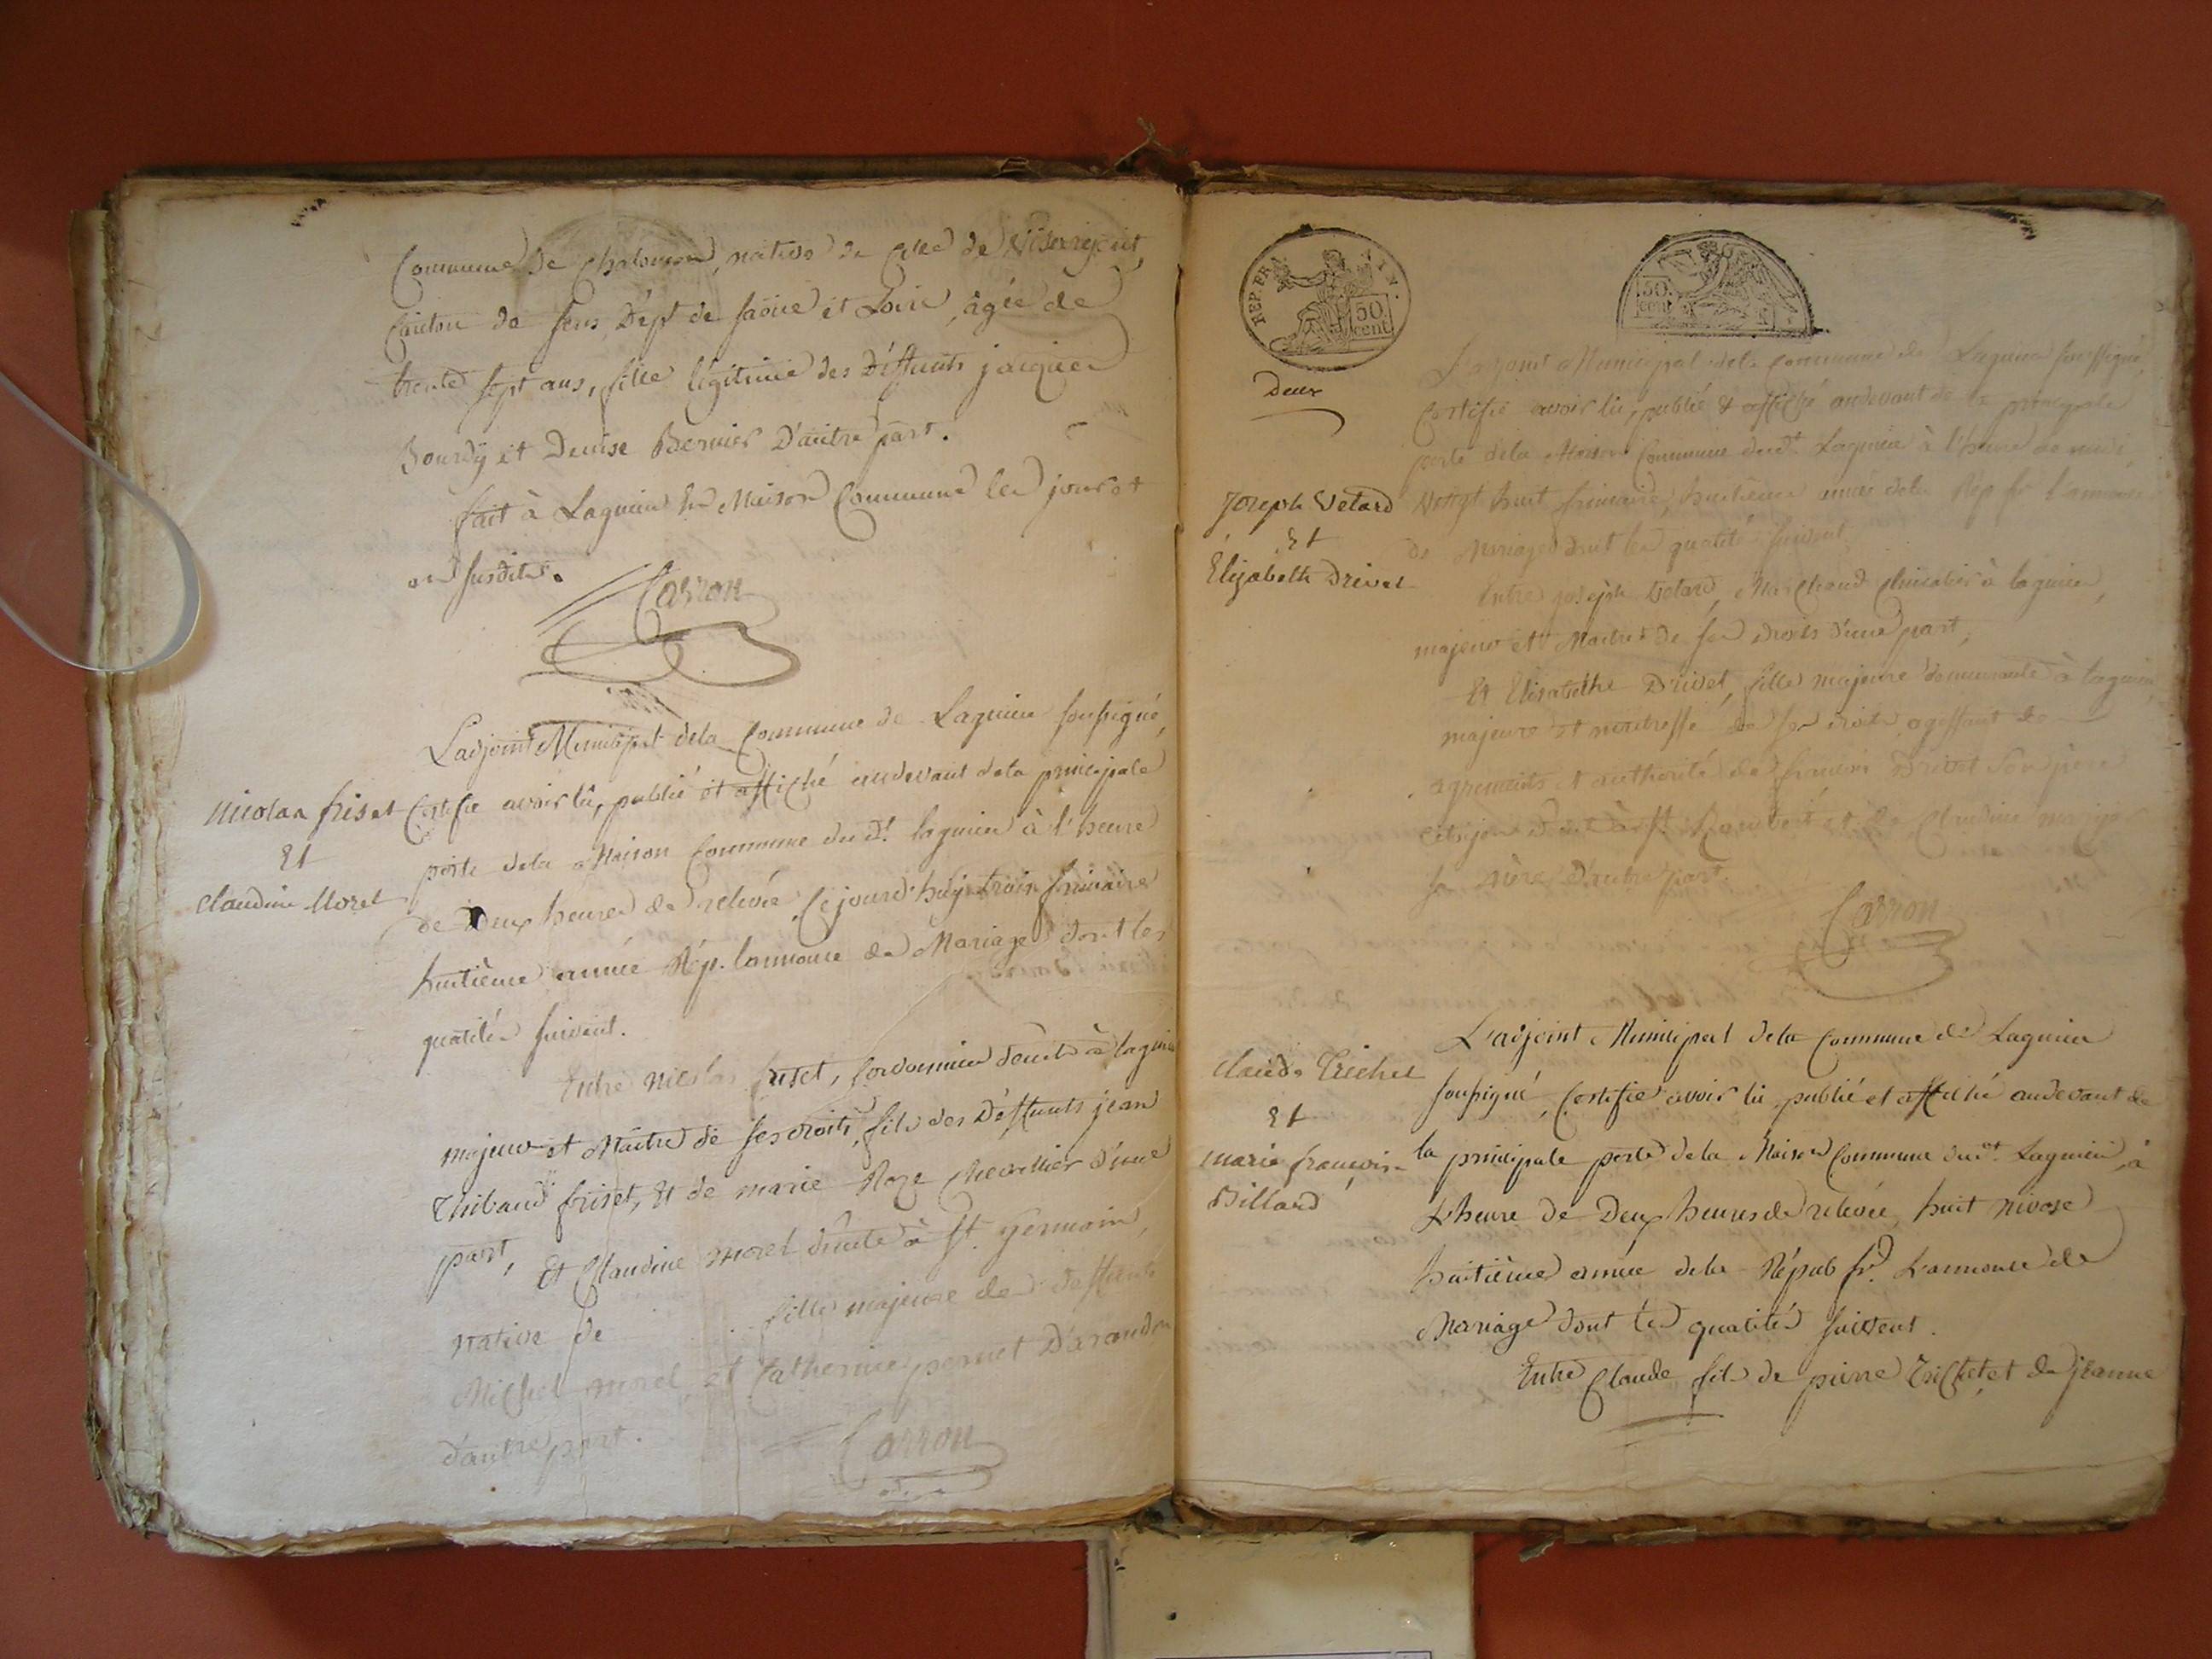 Commune de Chalamon, native de
Canton de sens, Dépt. de saône et Loire, agée de
trente sept ans, fille légitime des Déffunts jacques
Bourdy et Denise Bernier D'autre part.
fait à Lagnieu En Maison Commune les jour et
an susdits.
Carron
Nicolas friset
Et
Claudine Morel
L'adjoint Municipal dela Commune de Lagnieu soussigné,
Certifie avoir lû, publié et affiché audevant dela principale
porte dela Maison Commune dud.t lagnieu à l'heure
de Deux heures de relevée, Cejourd'huy trois frimaire
huitième année Rép. l'annonce de Mariage dont les
qualités suivent.
Entre Nicolas friset, Cordonnier demt. à lagnieu
majeur et Maitre de ses droits, fils des Déffunts jean
Thibaud friset, et de marie Roze Chevallier d'une
part, Et Claudine morel dmte à St. germain,
Native de fille majeure des deffunts
Michel morel, et Catherine pernet D'arandas
d'autre part.
Carron
REP. FRA. 50 cent
50 cent
Deux
Joseph Vetard
Et
Elizabeth Drivet
L'adjoint Municipal dela Commune de Lagnieu soussigné,
Certifie avoir lû, publié & affiché audevant de la principale
porte dela Maison Commune dud.t Lagnieu à l'heure de midi,
Vingt huit frimaire, huitième année dela Rép fr l'annonce
de Mariage dont les qualités suivent
Entre joseph Vetard, Marchand à lagnieu,
majeur et Maitre de ses droits d'une part,
Et Elisabethe Drivet, fille majeure demeurante à lagnieu,
majeure et maitresse de ses droits, agissant de
agréments et authorité de françois Drivet son père
Citoyen dmt à St. Rambert et de Claudine
sa mère D'autre part.
Carron
Claude Trichet
Et
Marie françoise
Billard
L'adjoint Municipal dela Commune de Lagnieu
soussigné, Certifie avoir lû, publié et affiché audevant de
la principale porte dela Maison Commune dud.t Lagnieu, à
L'heure de Deux heures de relevée, huit nivose
huitième année dela Répub fr. L'annonce de
Mariage dont les qualités suivent.
Entre Claude fils de pierre Trichet, et de jeanne